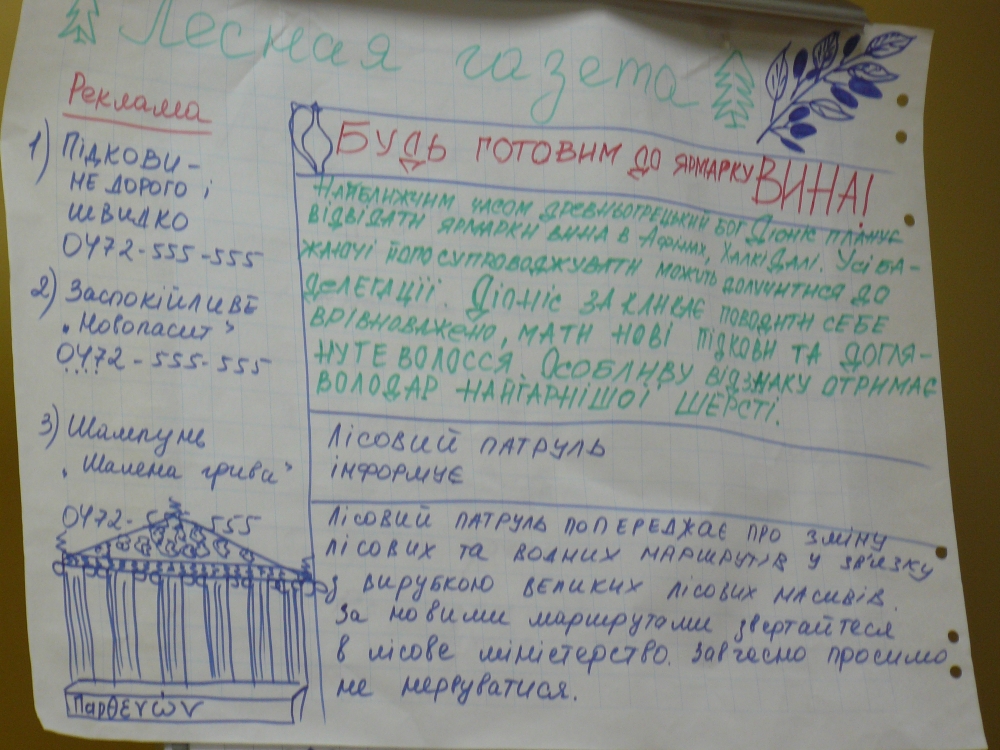 Лесная газета
Реклама
1) Підкови -
не дорого і
швидко
0472-555-555
2) Заспокійливе
„Новопасит"
0472-555-555
3) Шампунь
„Шалена грива"
0472- 555
ΠαρθΕνών
Будь готовим до ярмарку ВИНА!
Найближчим часом древньогрецький бог Діоніс планує
відвідати ярмарки вина в Афінах, Халкідалі. Усі ба-
жаючі його супроводжувати можуть долучитися до
делегації. Діоніс закликає поводити себе
врівноважено, мати нові підкови та догля-
нуте волосся. Особливу відзнаку отримає
володар найгарнішої шерсті.
Лісовий патруль
інформує
Лісовий патруль попереджає про зміну
лісових та водних маршрутів у зв'язку
з вирубкою великих лісових масивів.
За новими маршрутами звертайтеся
в лісове міністерство. Завчасно просимо
не нервуватися.